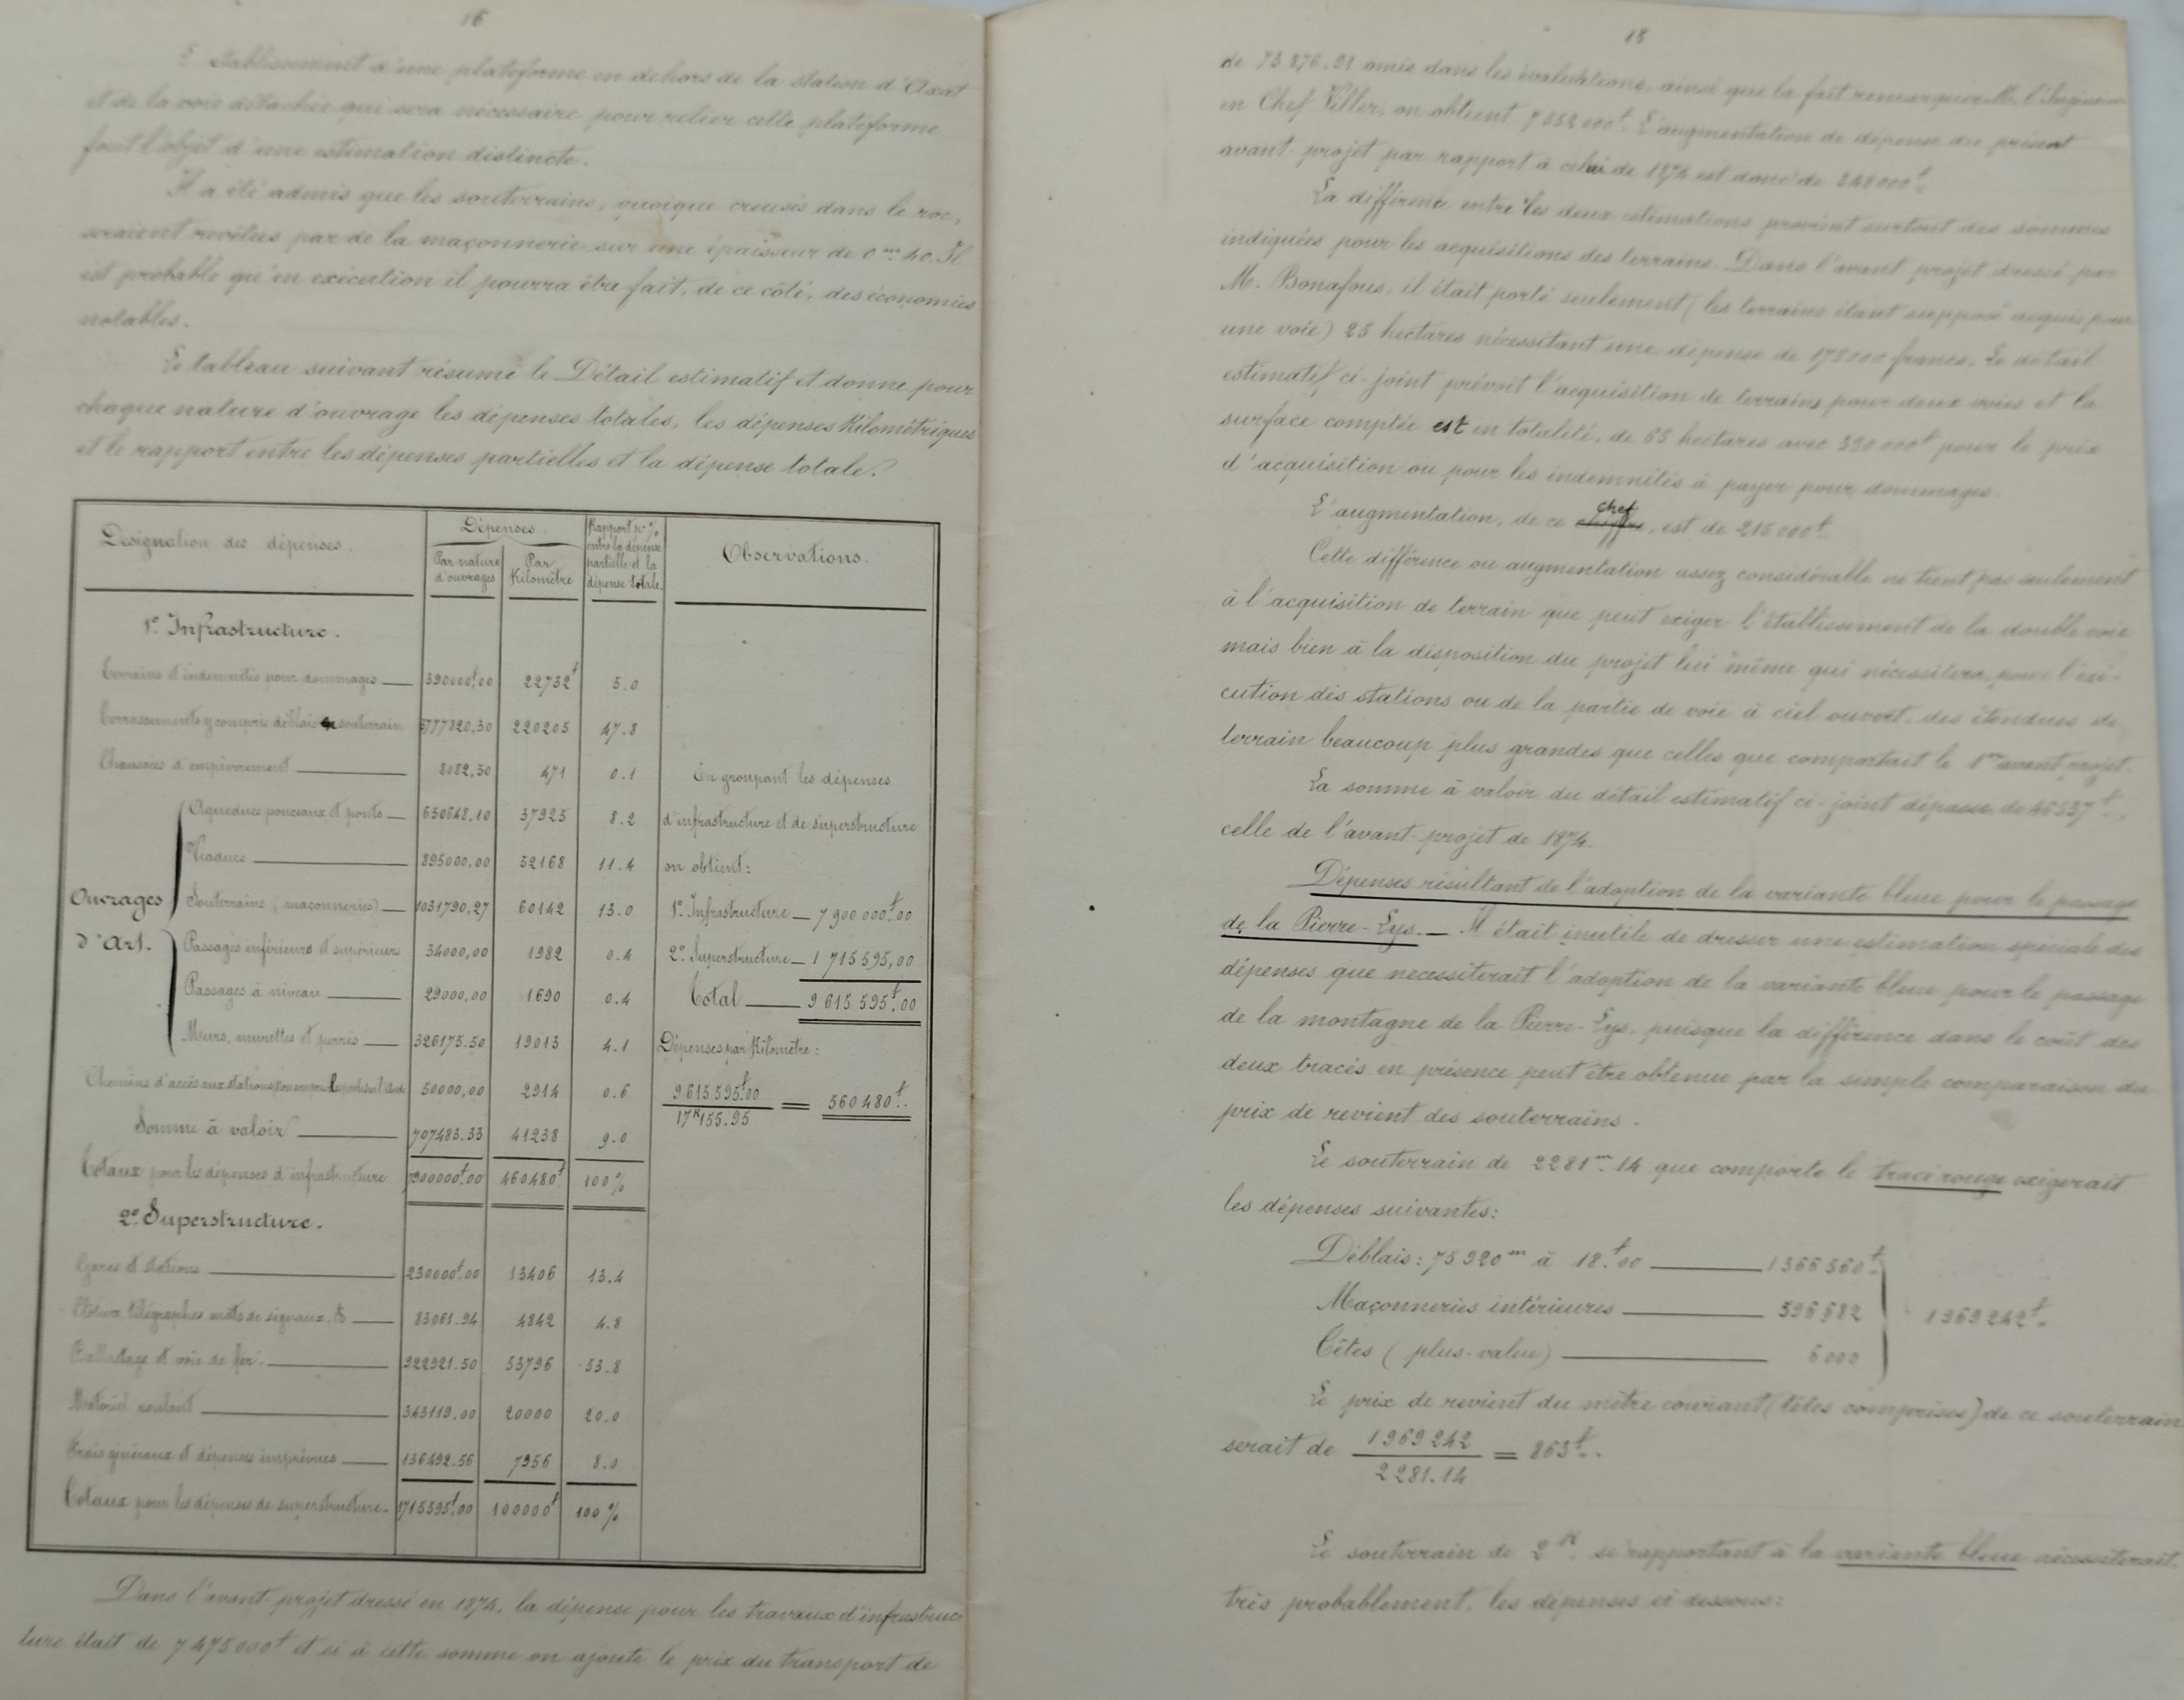 16
L'établissement d'une plateforme en dehors de la station d'Axat
et de la voie détachée qui sera nécessaire pour relier cette plateforme
font l'objet d'une estimation distincte.
Il a été admis que les souterrains, quoique creusés dans le roc,
seraient revêtus par de la maçonnerie sur une épaisseur de 0m.40. Il
est probable qu'en exécution il pourra être fait, de ce côté, des économies
notables.
Le tableau suivant résume le Détail estimatif et donne pour
chaque nature d'ouvrage les dépenses totales, les dépenses Kilométriques
et le rapport entre les dépenses partielles et la dépense totale.
Désignation des dépenses. Dépenses. Rapport p% entre la dépense partielle et la dépense totale Observations.
Par nature d'ouvrages Par Kilomètre
1° Infrastructure.
Terrains et indemnités pour dommages 390000f,00 22732f 5.0
Terrassements y compris déblais en souterrain 3777820,30 220205 47.8
Chaussées d'empierrement 8082,50 471 0.1
Ouvrages d'Art.
Aqueducs ponceaux et ponts 650648,10 37925 8.2
Viaducs 895000,00 52168 11.4
Souterrains (maçonneries) 1031790,27 60142 13.0
Passages inférieurs et supérieurs 34000,00 1982 0.4
Passages à niveau 29000,00 1690 0.4
Murs, murettes et perrés 326175.50 19013 4.1
Chemins d'accès aux stations 50000,00 2914 0.6
Somme à valoir 707483.33 41238 9.0
Totaux pour les dépenses d'infrastructure 7900000f.00 460480f 100%
2° Superstructure.
Gares et stations 230000f.00 13406 13.4
Clôtures télégraphes mâts de signaux. & 83061.94 4842 4.8
Ballastage et voie de fer. 922921.50 53796 53.8
Matériel roulant 343119.00 20000 20.0
Frais généraux et dépenses imprévues 136492.56 7956 8.0
Totaux pour les dépenses de superstructure 1715595f.00 100000f 100%
En groupant les dépenses
d'infrastructure et de superstructure
on obtient:
1° Infrastructure — 7900000f.00
2° Superstructure — 1715595,00
Total — 9615595f.00
Dépenses par Kilomètre:
9615595f.00 / 17K155.95 = 560480f..
Dans l'avant-projet dressé en 1874, la dépense pour les travaux d'infrastruc
ture était de 7475000f et si à cette somme on ajoute le prix du transport de
18
de 73876.91 omis dans les évaluations, ainsi que le fait remarquer M. l'Ingénieur
en Chef Viller, on obtient 7552000f. L'augmentation de dépense du présent
avant-projet par rapport à celui de 1874 est donc de 348000f.
La différence entre les deux estimations provient surtout des sommes
indiquées pour les acquisitions des terrains. Dans l'avant projet dressé par
M. Bonafous, il était porté seulement (les terrains étant supposé acquis pour
une voie) 25 hectares nécessitant une dépense de 175000 francs. Le détail
estimatif ci-joint prévoit l'acquisition de terrains pour deux voies et la
surface comptée est en totalité, de 65 hectares avec 390000f pour le prix
d'acquisition ou pour les indemnités à payer pour dommages.
L'augmentation, de ce chef, est de 215000f.
Cette différence ou augmentation assez considérable ne tient pas seulement
à l'acquisition de terrain que peut exiger l'établissement de la double voie
mais bien à la disposition du projet lui même qui nécessitera, pour l'exé-
cution des stations ou de la partie de voie à ciel ouvert, des étendues de
terrain beaucoup plus grandes que celles que comportait le 1er avant projet.
La somme à valoir du détail estimatif ci-joint dépasse de 46537f.
celle de l'avant-projet de 1874.
Dépenses résultant de l'adoption de la variante bleue pour le passage
de la Pierre-Lys. — Il était inutile de dresser une estimation spéciale des
dépenses que necessiterait l'adoption de la variante bleue pour le passage
de la montagne de la Pierre-Lys, puisque la différence dans le coût des
deux tracés en présence peut être obtenue par la simple comparaison du
prix de revient des souterrains.
Le souterrain de 2281m.14 que comporte le tracé rouge exigerait
les dépenses suivantes:
Déblais: 75920m à 18f.00 — 1366560f
Maçonneries intérieures — 596682
Têtes (plus-value) — 6000
1969242f.
Le prix de revient du mètre courant (têtes comprises) de ce souterrain
serait de 1969242 / 2281.14 = 863f..
Le souterrain de 2K. se rapportant à la variante bleue nécessiterait
très probablement, les dépenses ci dessous: